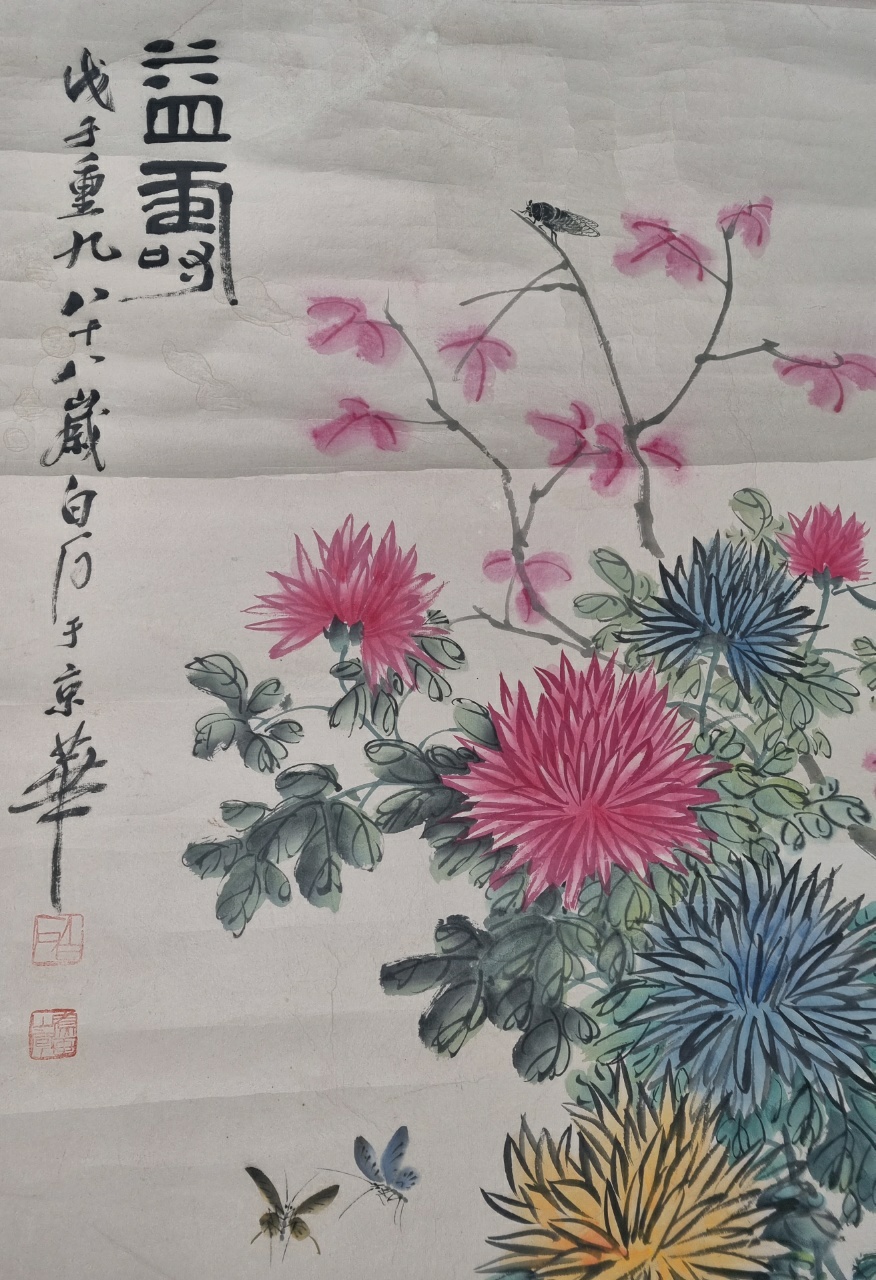 益壽
戊子重九八十八歲白石于京華